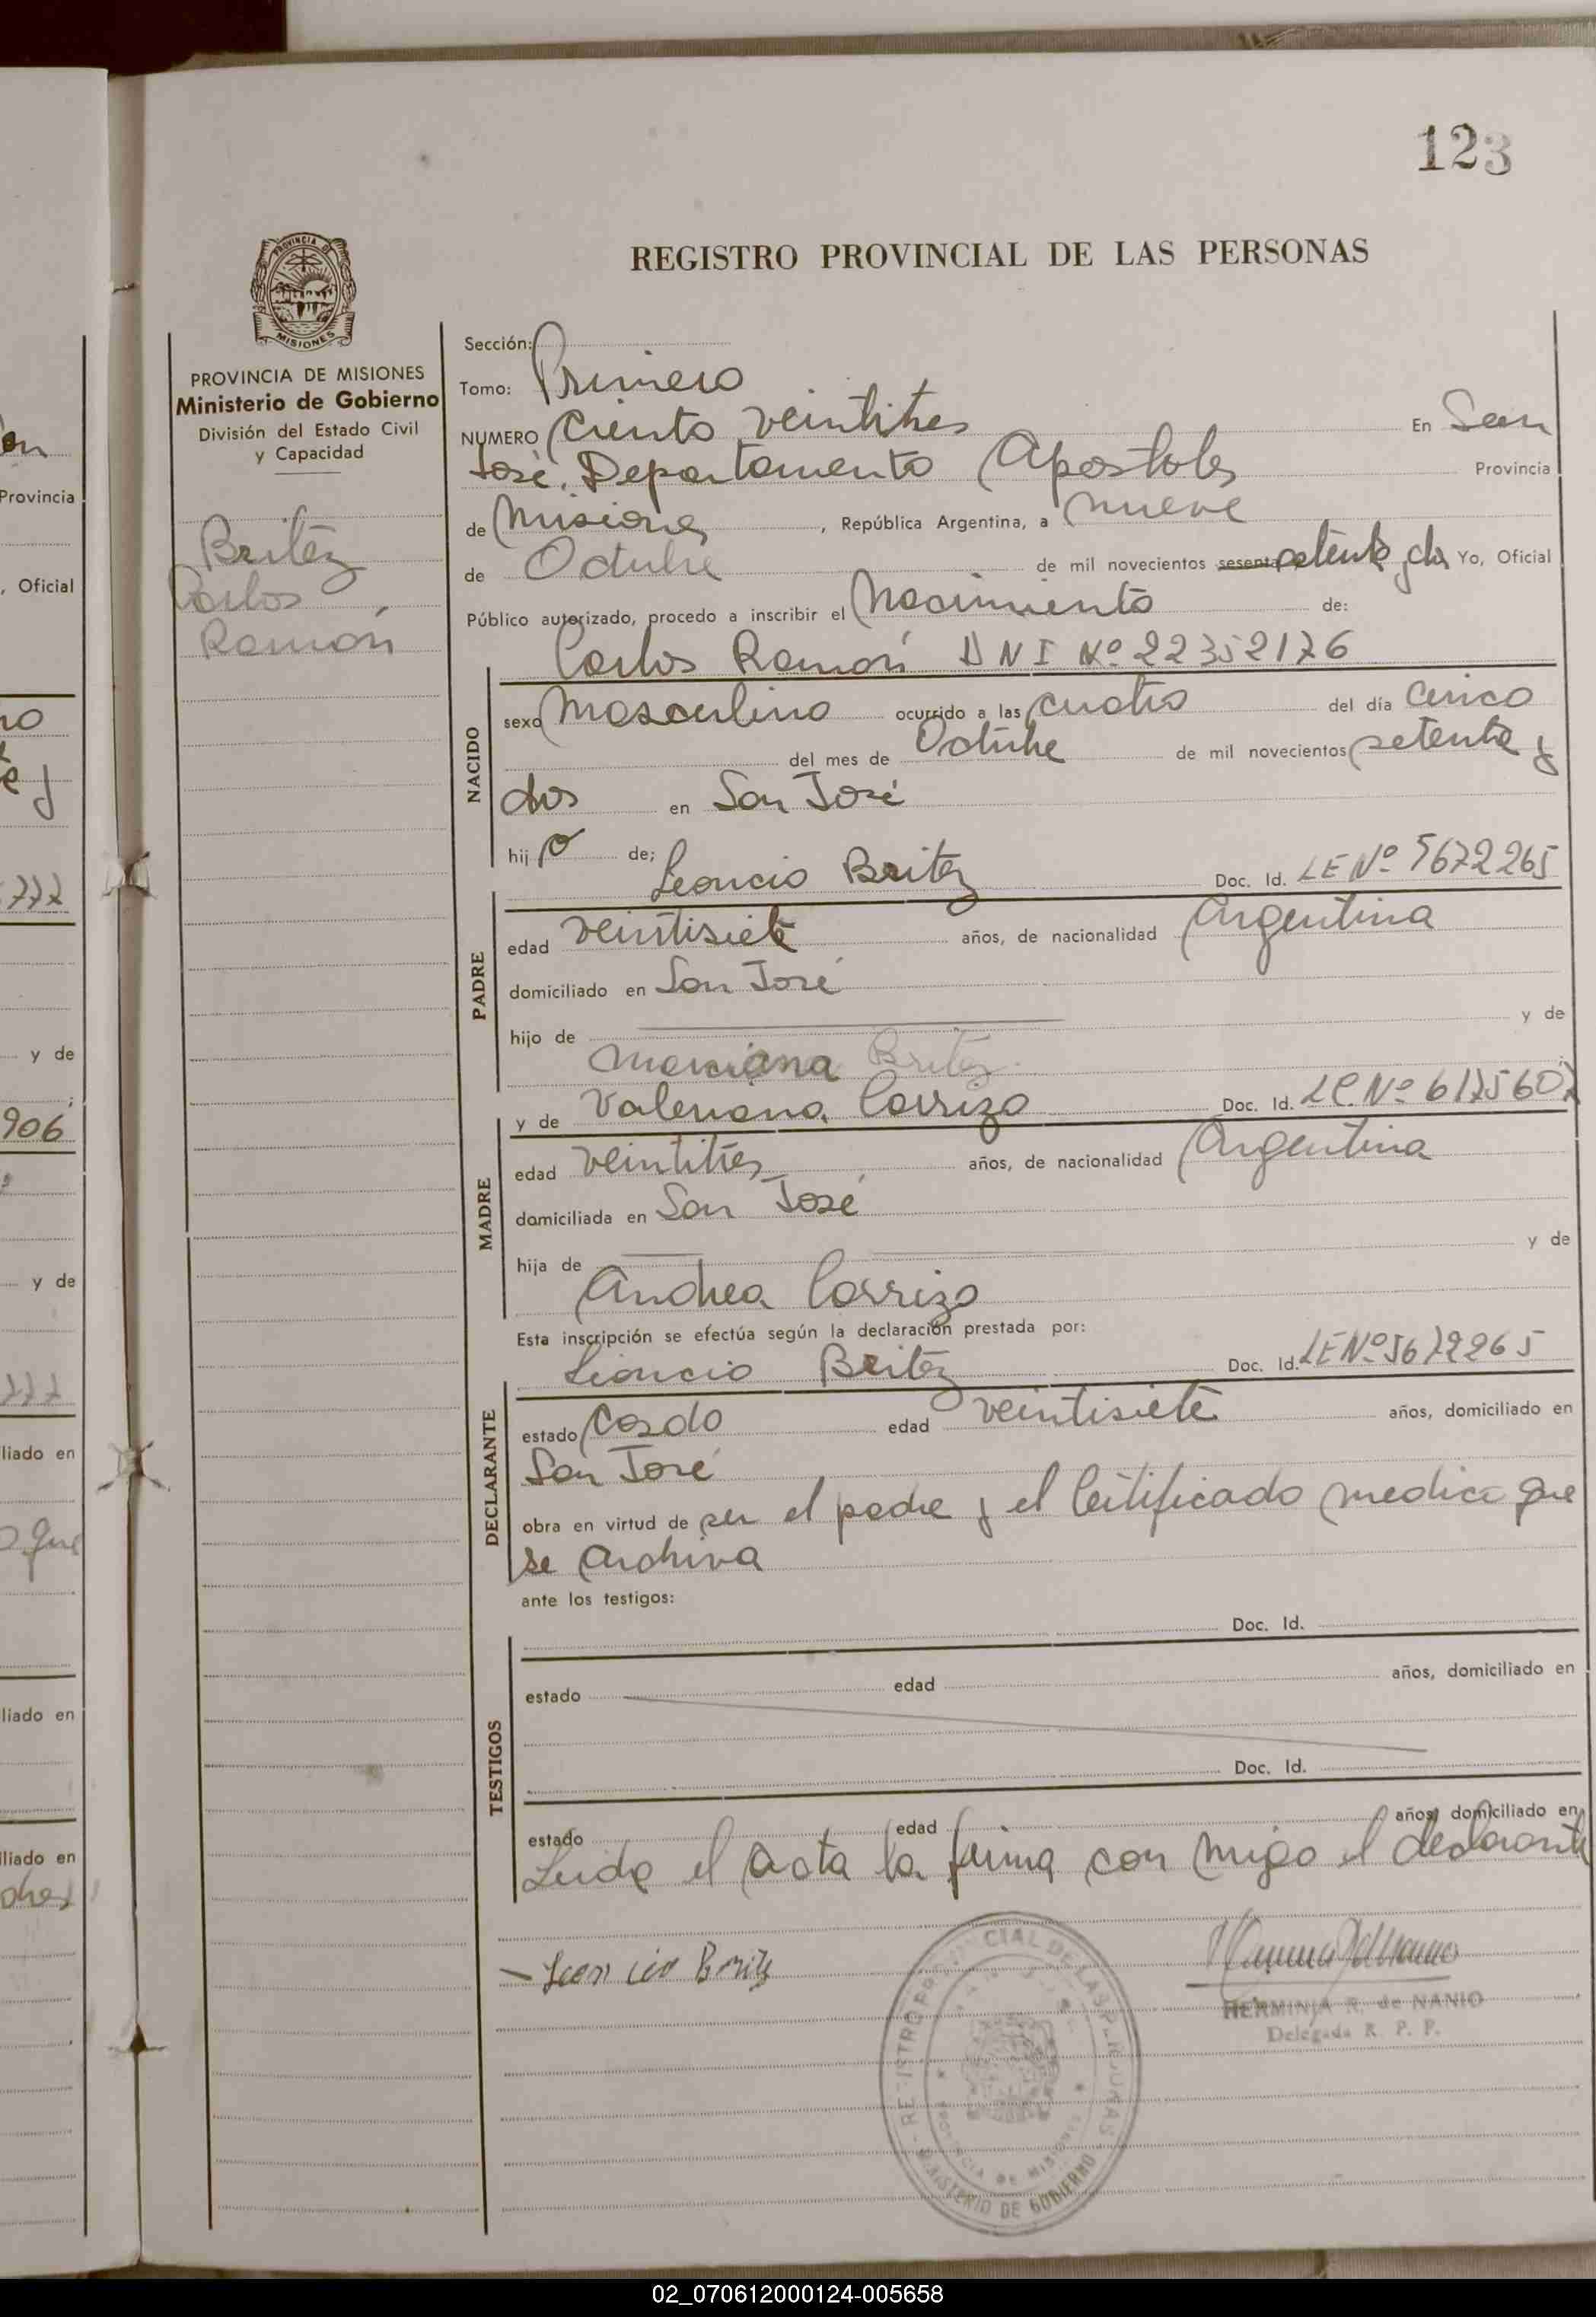 123
REGISTRO PROVINCIAL DE LAS PERSONAS
PROVINCIA DE
MISIONES
PROVINCIA DE MISIONES
Ministerio de Gobierno
División del Estado Civil
y Capacidad
Britez
Carlos
Ramón
Sección:
Tomo: Primero
NUMERO Ciento veintitres En San
José, Departamento Apostoles Provincia
de Misiones, República Argentina, a nueve
de Octubre de mil novecientos sesenta setenta y dos Yo, Oficial
Público autorizado, procedo a inscribir el Nacimiento de:
Carlos Ramón DNI Nº 22352176
NACIDO
sexo Masculino ocurrido a las cuatro del día cinco
del mes de Octubre de mil novecientos setenta y
dos en San José
hijo de; Leoncio Britez Doc. Id. LE Nº 5672265
PADRE
edad veintisiete años, de nacionalidad Argentina
domiciliado en San José
hijo de y de
Marciana Britez
y de Valeriana Carrizo Doc. Id. LC. Nº 6175607
MADRE
edad veintitres años, de nacionalidad Argentina
domiciliada en San José
hija de y de
Andrea Carrizo
Esta inscripción se efectúa según la declaración prestada por:
Leoncio Britez Doc. Id. LE Nº 5672265
DECLARANTE
estado Casdo edad veintisiete años, domiciliado en
San José
obra en virtud de ser el padre y el Certificado medico que
se archiva
ante los testigos:
Doc. Id.
TESTIGOS
estado edad años, domiciliado en
Doc. Id.
estado edad años, domiciliado en
Leida el acta la firma con migo el declarante
Leoncio Britez
HERMINIA R. de NANIO
Delegada R. P. P.
REGISTRO PROVINCIAL DE LAS PERSONAS
PROVINCIA DE MISIONES
MINISTERIO DE GOBIERNO
en
Provincia
, Oficial
y de
906
y de
liado en
que
liado en
liado en
02_070612000124-005658